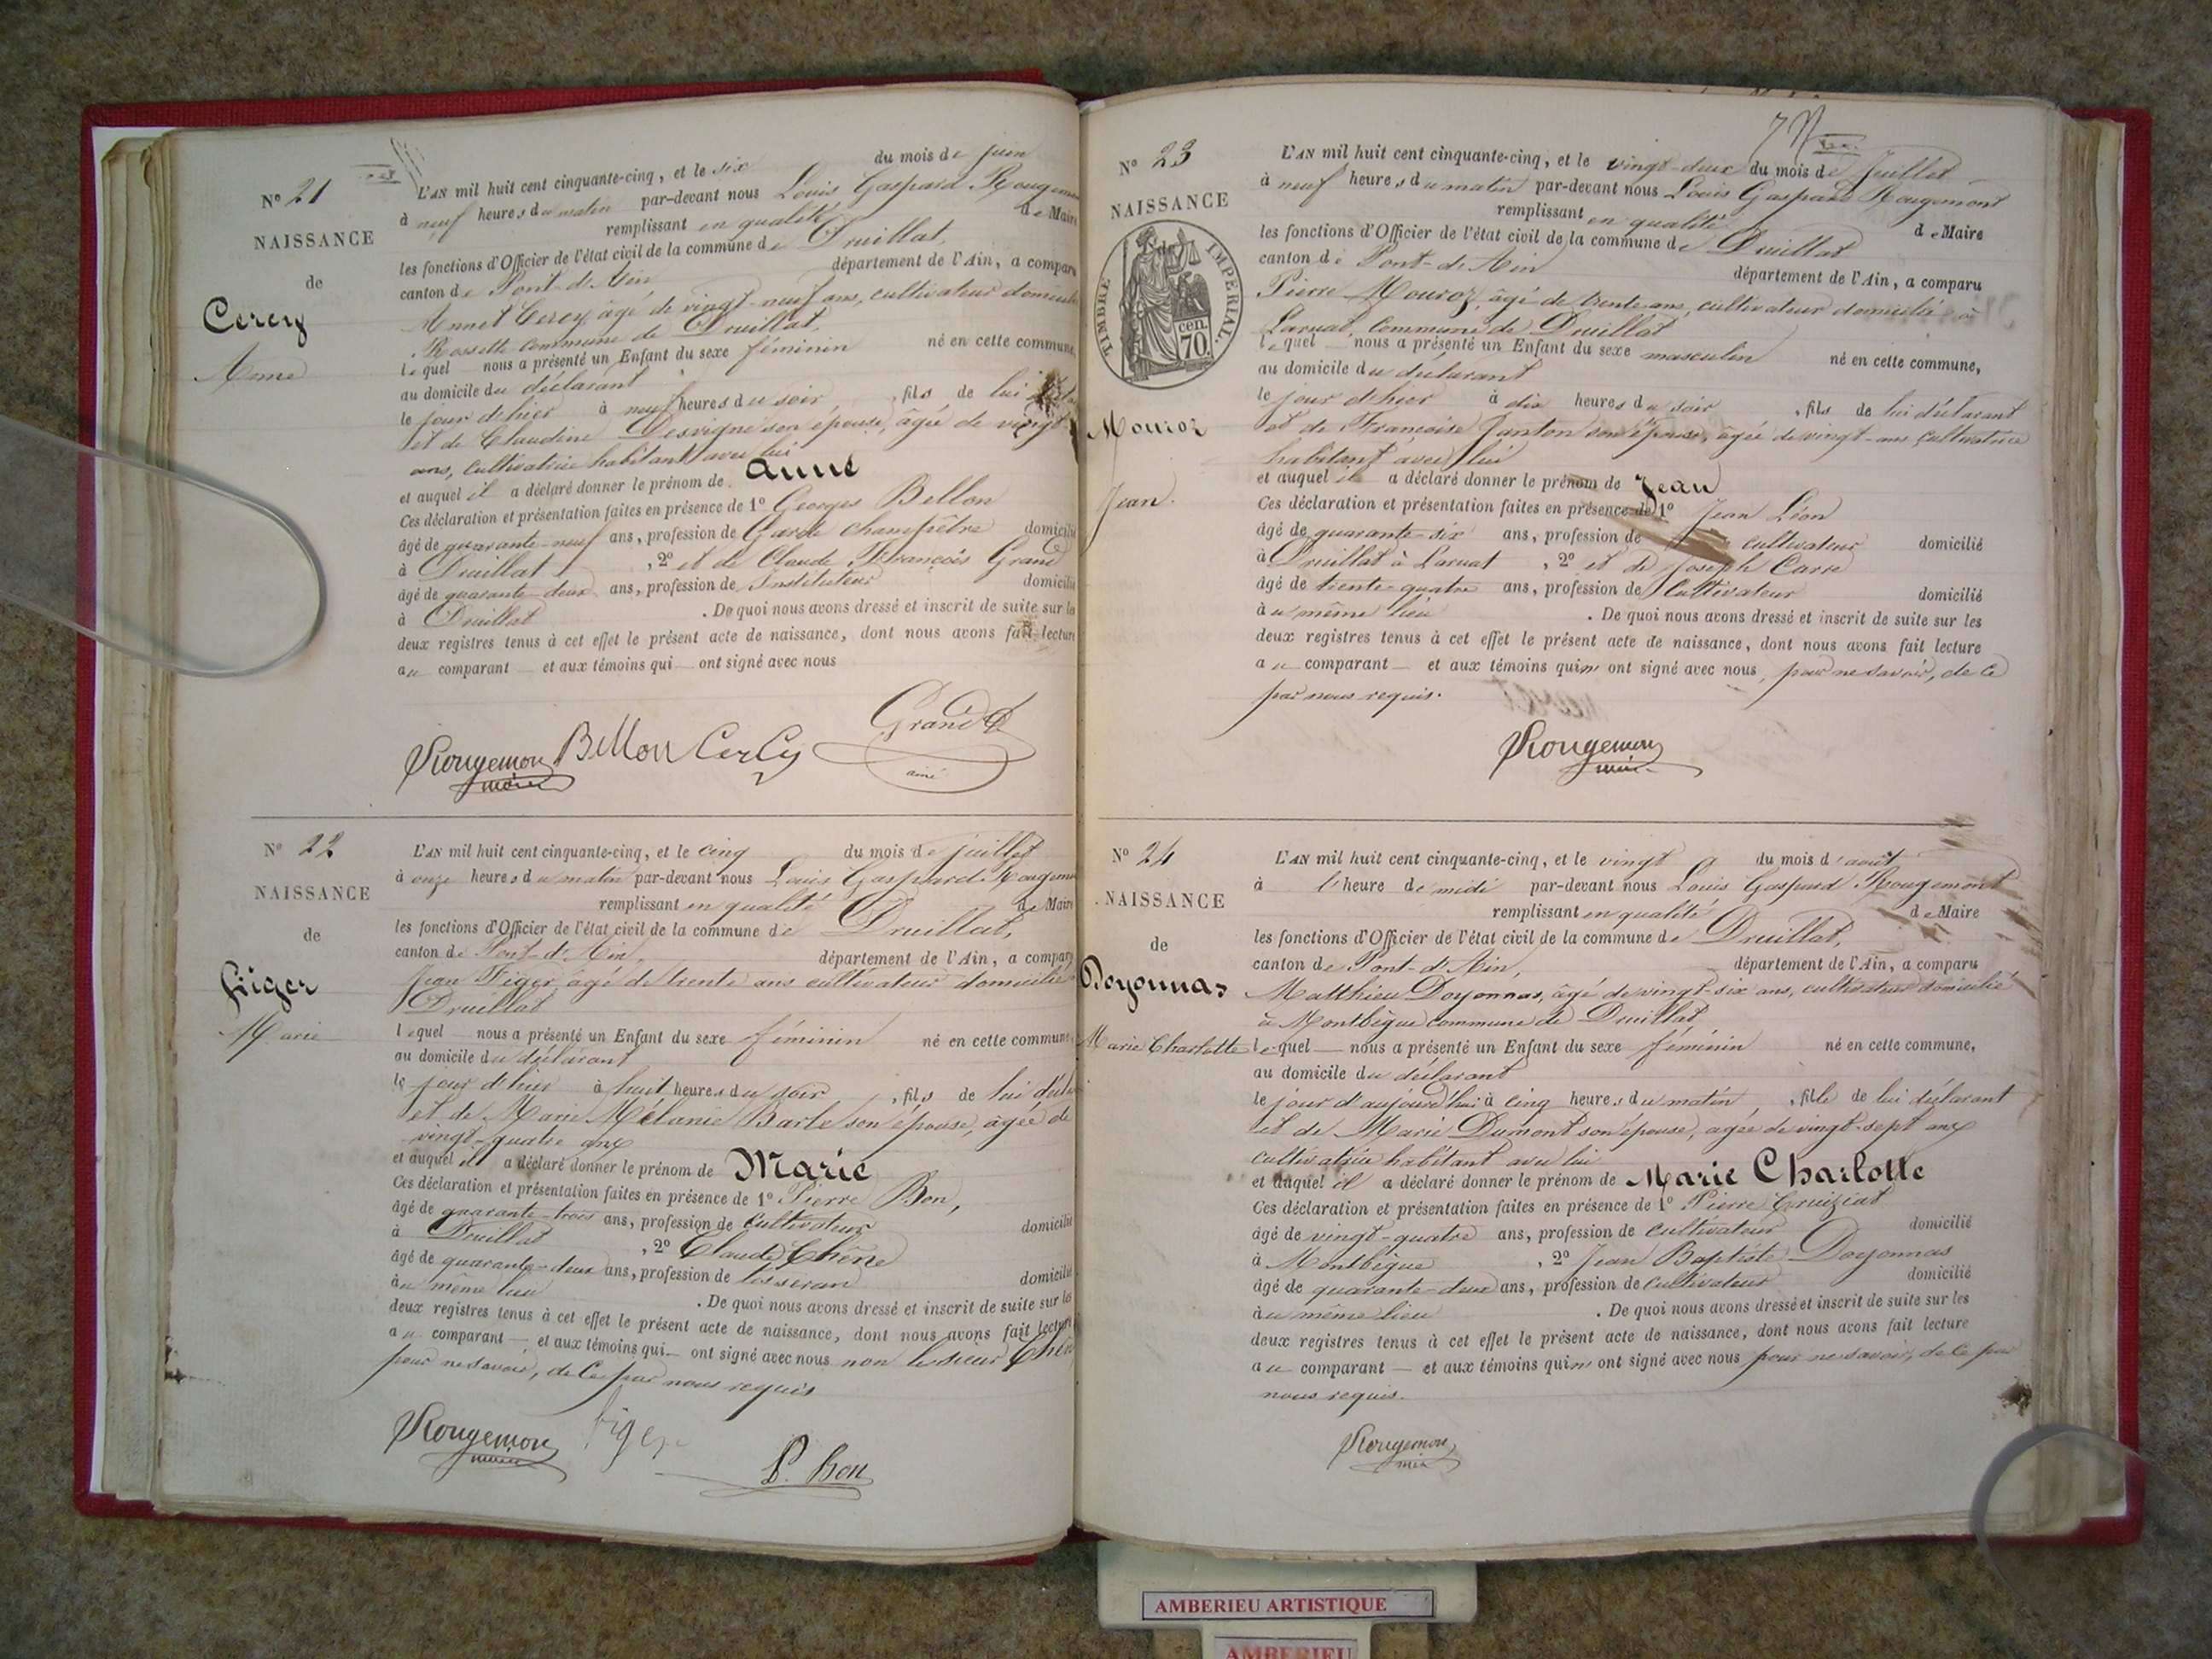 N° 21
NAISSANCE
de
Cercy
L'AN mil huit cent cinquante-cinq, et le six du mois de juin
à neuf heures du matin par-devant nous Louis Gaspard
remplissant en qualité de Maire
les fonctions d'Officier de l'état civil de la commune de Druillat,
canton de Pont-d'Ain département de l'Ain, a comparu
Annet Cercy âgé de vingt-neuf ans, cultivateur
Rossette commune de Druillat,
lequel nous a présenté un Enfant du sexe féminin né en cette commune,
au domicile du déclarant
le jour d'hier à neuf heures du soir, fils de lui
et de Claudine Desvigne son épouse, âgée de vingt
ans, cultivatrice habitant avec lui
et auquel il a déclaré donner le prénom de Anne
Ces déclaration et présentation faites en présence de 1° Georges Bellon
âgé de quarante-neuf ans, profession de Garde champêtre domicilié
à Druillat, 2° et de Claude François Grand
âgé de quarante-deux ans, profession de Instituteur domicilié
à Druillat . De quoi nous avons dressé et inscrit de suite sur les
deux registres tenus à cet effet le présent acte de naissance, dont nous avons fait lecture
au comparant et aux témoins qui ont signé avec nous
Rougemon Bellon Cercy Grand
maire aîné
N° 22
NAISSANCE
de
Figer
Marie
L'AN mil huit cent cinquante-cinq, et le cinq du mois de juillet
à onze heures du matin par-devant nous Louis Gaspard
remplissant en qualité de Maire
les fonctions d'Officier de l'état civil de la commune de Druillat,
canton de Pont-d'Ain, département de l'Ain, a comparu
Jean Figer, âgé de trente ans cultivateur domicilié
Druillat
lequel nous a présenté un Enfant du sexe féminin né en cette commune,
au domicile du déclarant
le jour d'hier à huit heures du soir, fils de lui
et de Marie Mélanie Barle son épouse, âgée de
vingt-quatre ans
et auquel il a déclaré donner le prénom de Marie
Ces déclaration et présentation faites en présence de 1° Pierre Bon,
âgé de quarante-trois ans, profession de cultivateur domicilié
à Druillat, 2° Claude Chêne
âgé de quarante-deux ans, profession de tisseran domicilié
au même lieu . De quoi nous avons dressé et inscrit de suite sur les
deux registres tenus à cet effet le présent acte de naissance, dont nous avons fait lecture
au comparant et aux témoins qui ont signé avec nous non le sieur
pour ne savoir, de ce par nous requis
Rougemon figer P. Bon
maire
N° 23
NAISSANCE
TIMBRE IMPÉRIAL.
70. cen.
Mouroz
Jean.
L'AN mil huit cent cinquante-cinq, et le vingt-deux du mois de Juillet
à neuf heures du matin par-devant nous Louis Gaspard Rougemont
remplissant en qualité de Maire
les fonctions d'Officier de l'état civil de la commune de Druillat
canton de Pont-d'Ain département de l'Ain, a comparu
Pierre Mouroz, âgé de trente ans, cultivateur domicilié à
Larnat, commune de Druillat
lequel nous a présenté un Enfant du sexe masculin né en cette commune,
au domicile du déclarant
le jour d'hier à dix heures du soir, fils de lui déclarant
et de Françoise Janton son épouse, âgée de vingt-ans cultivatrice
habitant avec lui
et auquel il a déclaré donner le prénom de Jean
Ces déclaration et présentation faites en présence de 1° Jean Léon
âgé de quarante-six ans, profession de cultivateur domicilié
à Druillat à Larnat, 2° et de Joseph Carre
âgé de trente-quatre ans, profession de Cultivateur domicilié
au même lieu . De quoi nous avons dressé et inscrit de suite sur les
deux registres tenus à cet effet le présent acte de naissance, dont nous avons fait lecture
au comparant et aux témoins qui n'ont signé avec nous, pour ne savoir, de ce
par nous requis.
Rougemon
N° 24
NAISSANCE
de
Doyonnas
Marie Charlotte
L'AN mil huit cent cinquante-cinq, et le vingt du mois d'août
à l'heure de midi par-devant nous Louis Gaspard Rougemont
remplissant en qualité de Maire
les fonctions d'Officier de l'état civil de la commune de Druillat,
canton de Pont-d'Ain, département de l'Ain, a comparu
Matthieu Doyonnas, âgé de vingt-six ans, cultivateur domicilié
à Montbègue commune de Druillat
lequel nous a présenté un Enfant du sexe féminin né en cette commune,
au domicile du déclarant
le jour d'aujourd'hui à cinq heures du matin, fille de lui déclarant
et de Marie Dumont son épouse, agée de vingt-sept ans
cultivatrice habitant avec lui
et auquel il a déclaré donner le prénom de Marie Charlotte
Ces déclaration et présentation faites en présence de 1° Pierre Cruiziat
âgé de vingt-quatre ans, profession de cultivateur domicilié
à Montbègue, 2° Jean Baptiste Doyonnas
âgé de quarante-deux ans, profession de cultivateur domicilié
au même lieu . De quoi nous avons dressé et inscrit de suite sur les
deux registres tenus à cet effet le présent acte de naissance, dont nous avons fait lecture
au comparant et aux témoins qui n'ont signé avec nous pour ne savoir, de ce par
nous requis.
Rougemon
AMBERIEU ARTISTIQUE
AMBERIEU